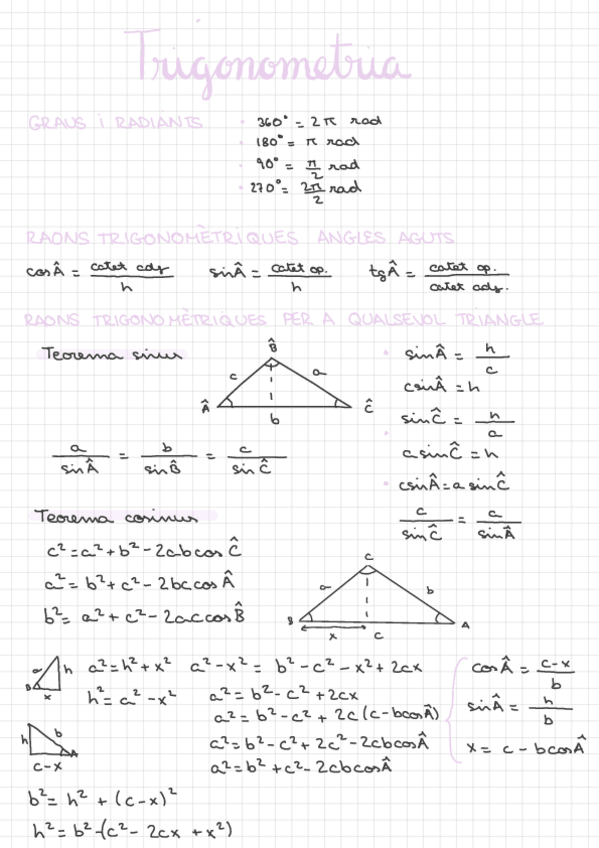 Trigonometria
GRAUS i RADIANTS
· 360° = 2π rad
· 180° = π rad
· 90° = π/2 rad
· 270° = 2π/2 rad
RAONS TRIGONOMÈTRIQUES ANGLES AGUTS
cosÂ = catet adj/h sinÂ = catet op./h tgÂ = catet op./catet adj.
RAONS TRIGONOMÈTRIQUES PER A QUALSEVOL TRIANGLE
Teorema sinus
B̂
c a
Â Ĉ
b
a/sinÂ = b/sinB̂ = c/sinĈ
· sinÂ = h/c
csinÂ = h
· sinĈ = h/a
asinĈ = h
· csinÂ = a sinĈ
c/sinĈ = a/sinÂ
Teorema cosinus
c² = a² + b² - 2abcosĈ
a² = b² + c² - 2bccosÂ
b² = a² + c² - 2accosB̂
C
a b
B A
x c
a h
B x
a² = h² + x²
h² = a² - x²
h b
A
c-x
b² = h² + (c-x)²
h² = b² - (c² - 2cx + x²)
a² - x² = b² - c² - x² + 2cx
a² = b² - c² + 2cx
a² = b² - c² + 2c(c-bcosÂ)
a² = b² - c² + 2c² - 2cbcosÂ
a² = b² + c² - 2cbcosÂ
cosÂ = c-x/b
sinÂ = h/b
x = c - bcosÂ